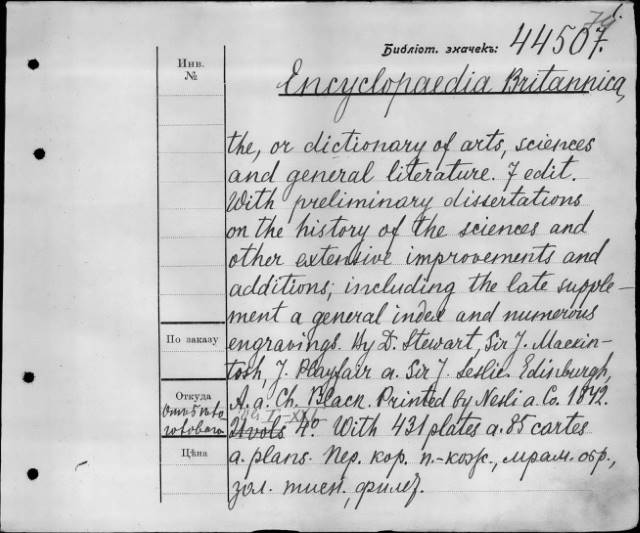 Библіот. значекъ: 44507.
Инв. №
Encyclopaedia Britannica,
the, or dictionary of arts, sciences
and general literature. 7 edit.
With preliminary dissertations
on the history of the sciences and
other extensive improvements and
additions; including the late supple-
ment a general index and numerous
По заказу
engravings. By D. Stewart, Sir J. Mackin-
tosh, J. Playfair a. Sir J. Leslie. Edinburgh,
Откуда
A. a. Ch. Black. Printed by Neill a. Co. 1842.
21 vols 4º. With 431 plates a. 85 cartes
Цѣна
a. plans. Пер. кор. п.-кож., мрам. обр.,
зол. тисн., филез.